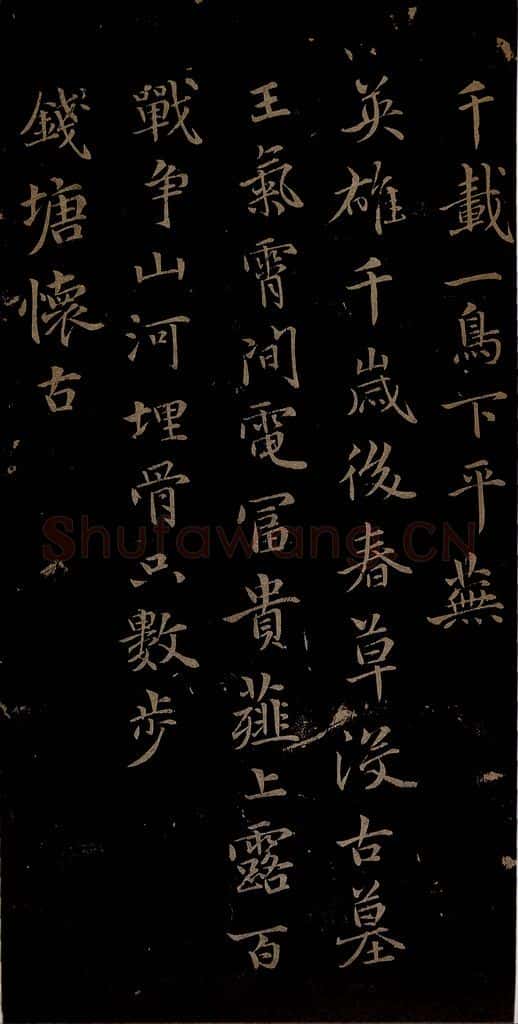 千載一鳥下平蕪
英雄千歲後春草没古墓
王氣霄間電冨貴薤上露百
戰争山河埋骨只數步
錢塘懷古
Shufawang.CN